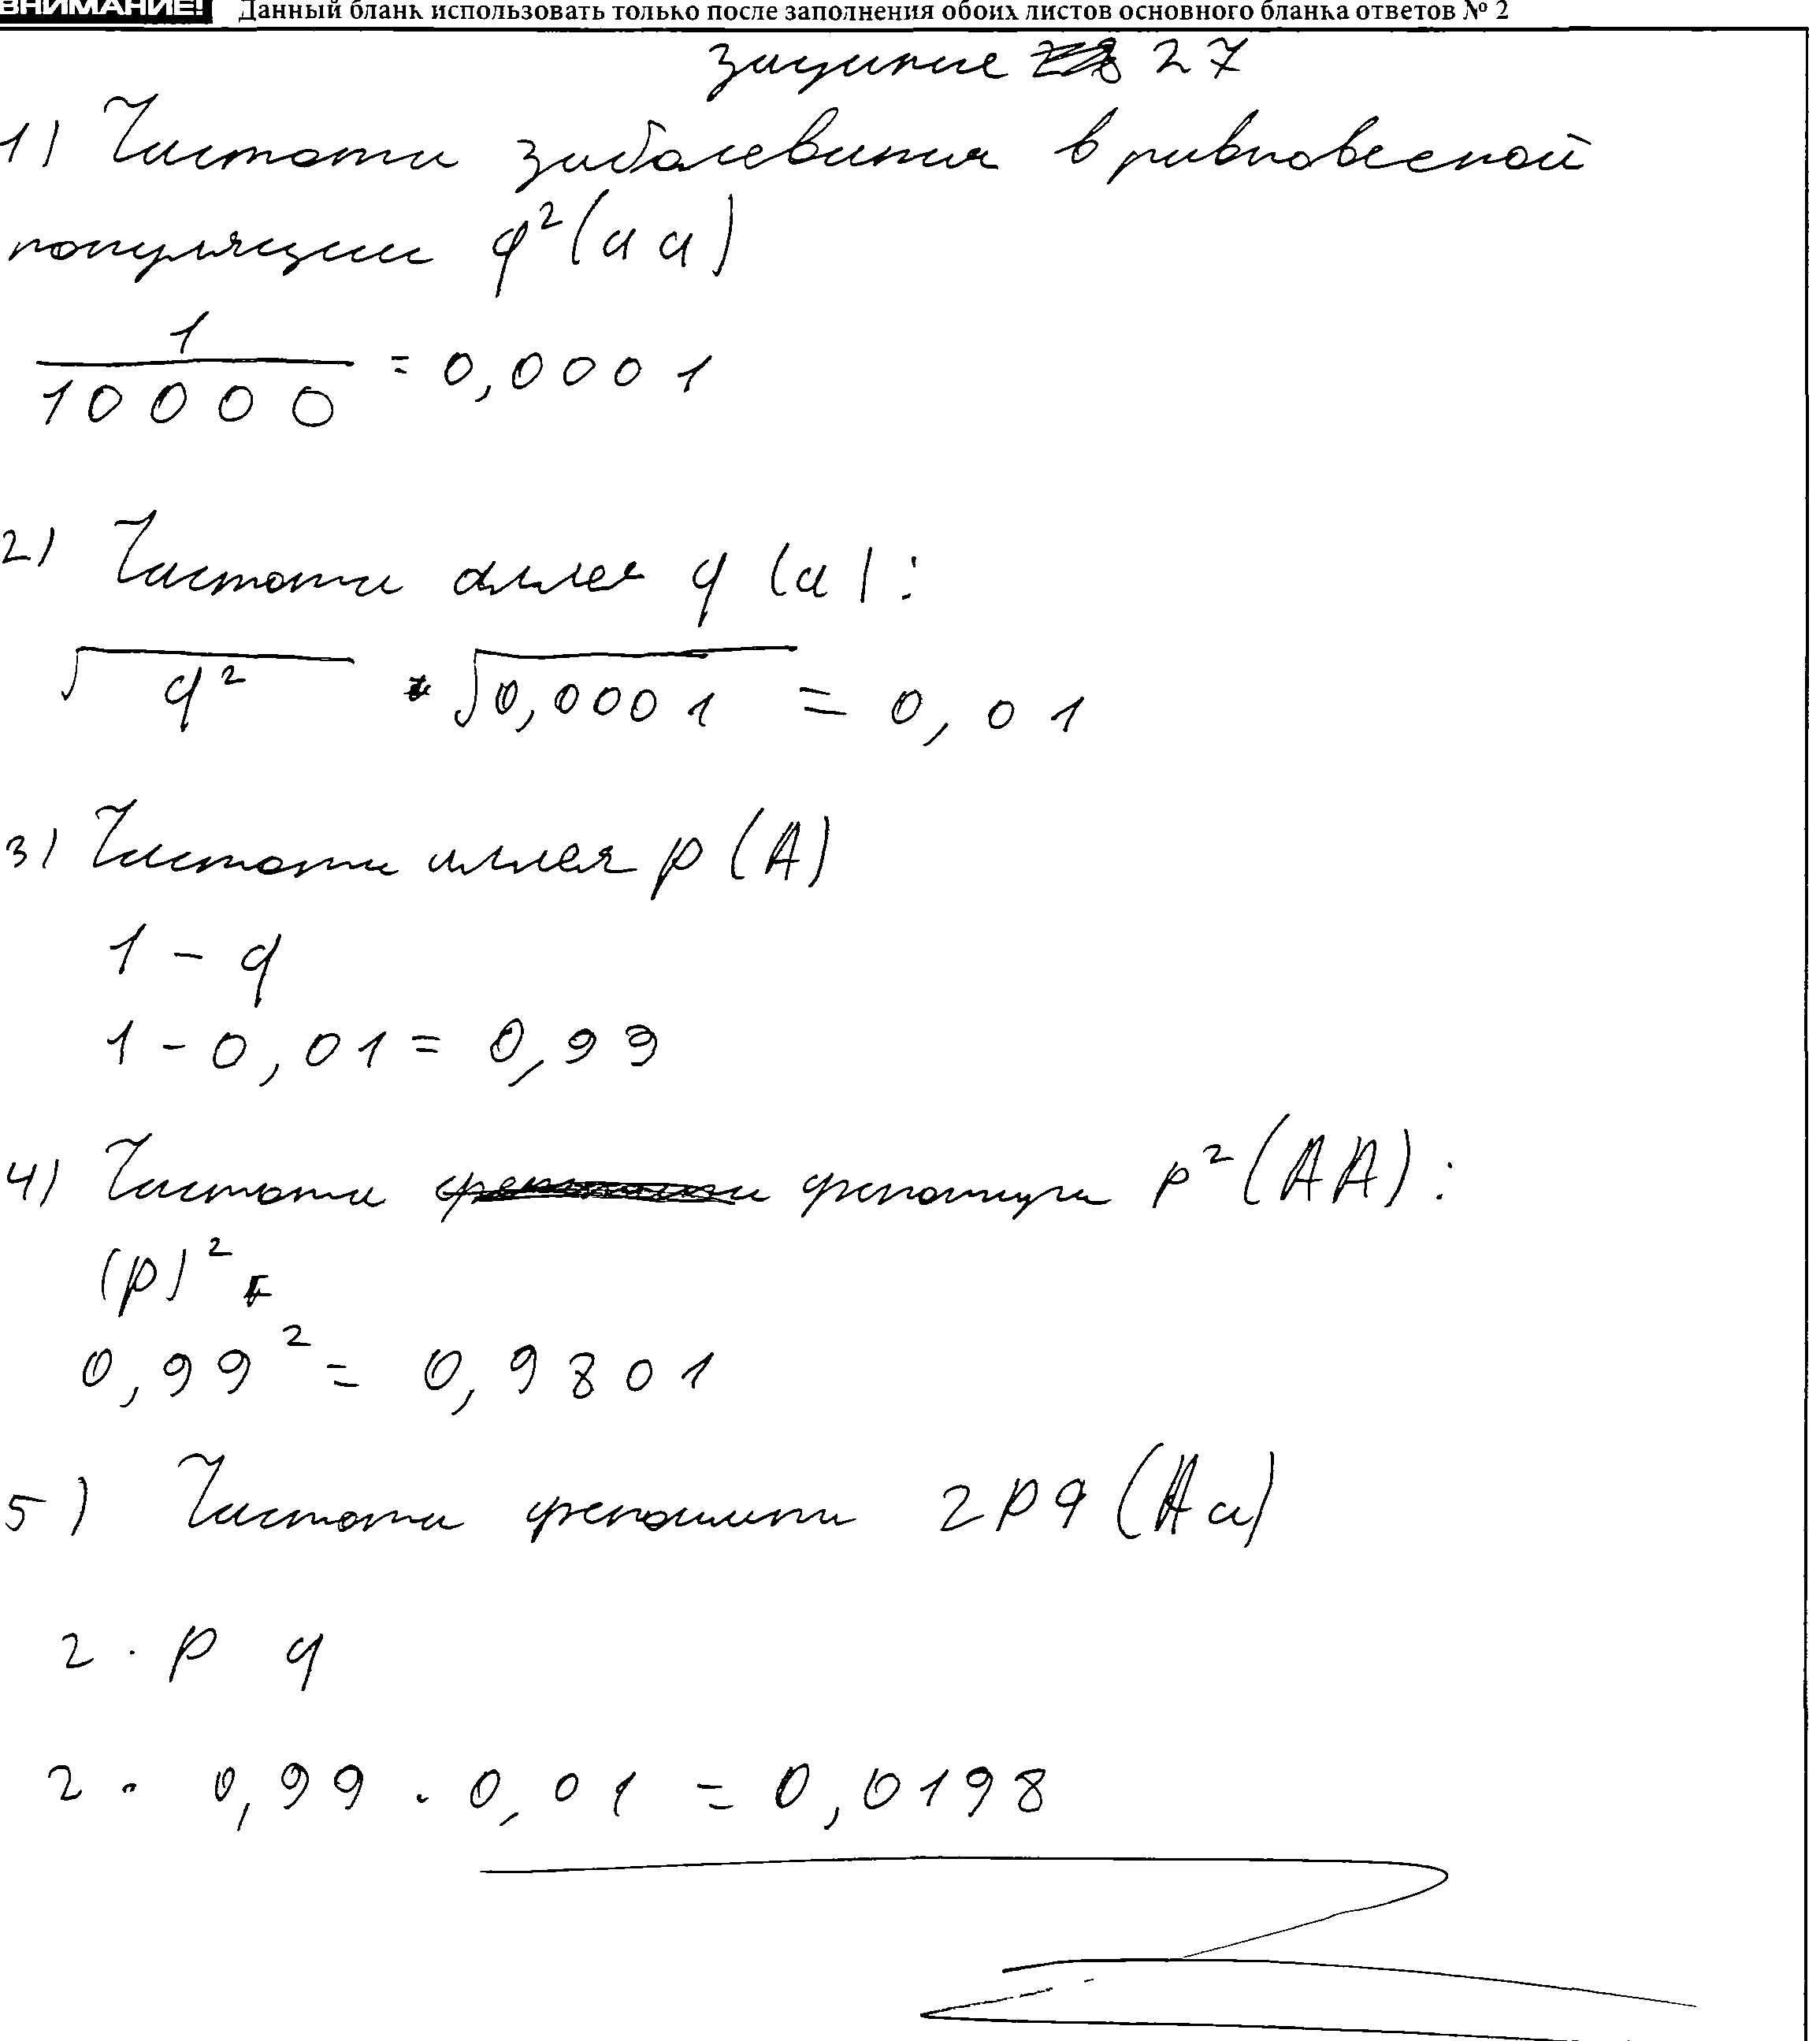 ВНИМАНИЕ! Данный бланк использовать только после заполнения обоих листов основного бланка ответов № 2
задание 27
1) Частота заболевания в равновесной
популяции q²(aa)
1
10000 = 0,0001
2) Частота аллея q (a):
√q² = √0,0001 = 0,01
3) Частота аллея p (A)
1 - q
1 - 0,01 = 0,99
4) Частота фенотипа p²(AA):
(p)²
0,99² = 0,9801
5) Частота 2pq (Aa)
2 · p q
2 · 0,99 · 0,01 = 0,0198